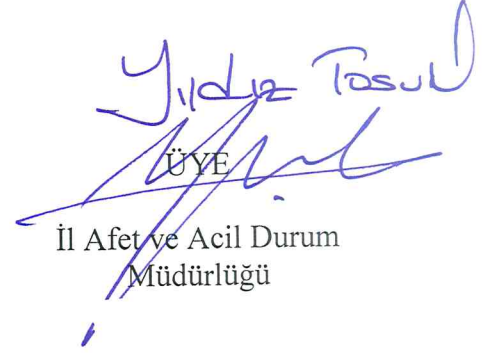 Yıldız Tosun
ÜYE
İl Afet ve Acil Durum
Müdürlüğü